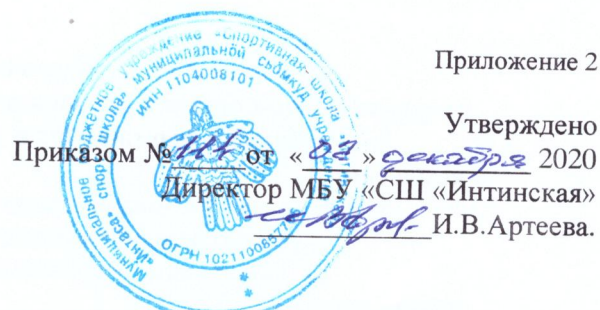 Приложение 2
Утверждено
Приказом № 111 от «02» декабря 2020
Директор МБУ «СШ «Интинская»
И.В.Артеева.
Муниципальное бюджетное учреждение «Спортивная школа
«Интаса» спорт школа» муниципальнӧй сьӧмкуд учреждение
ИНН 1104008101
ОГРН